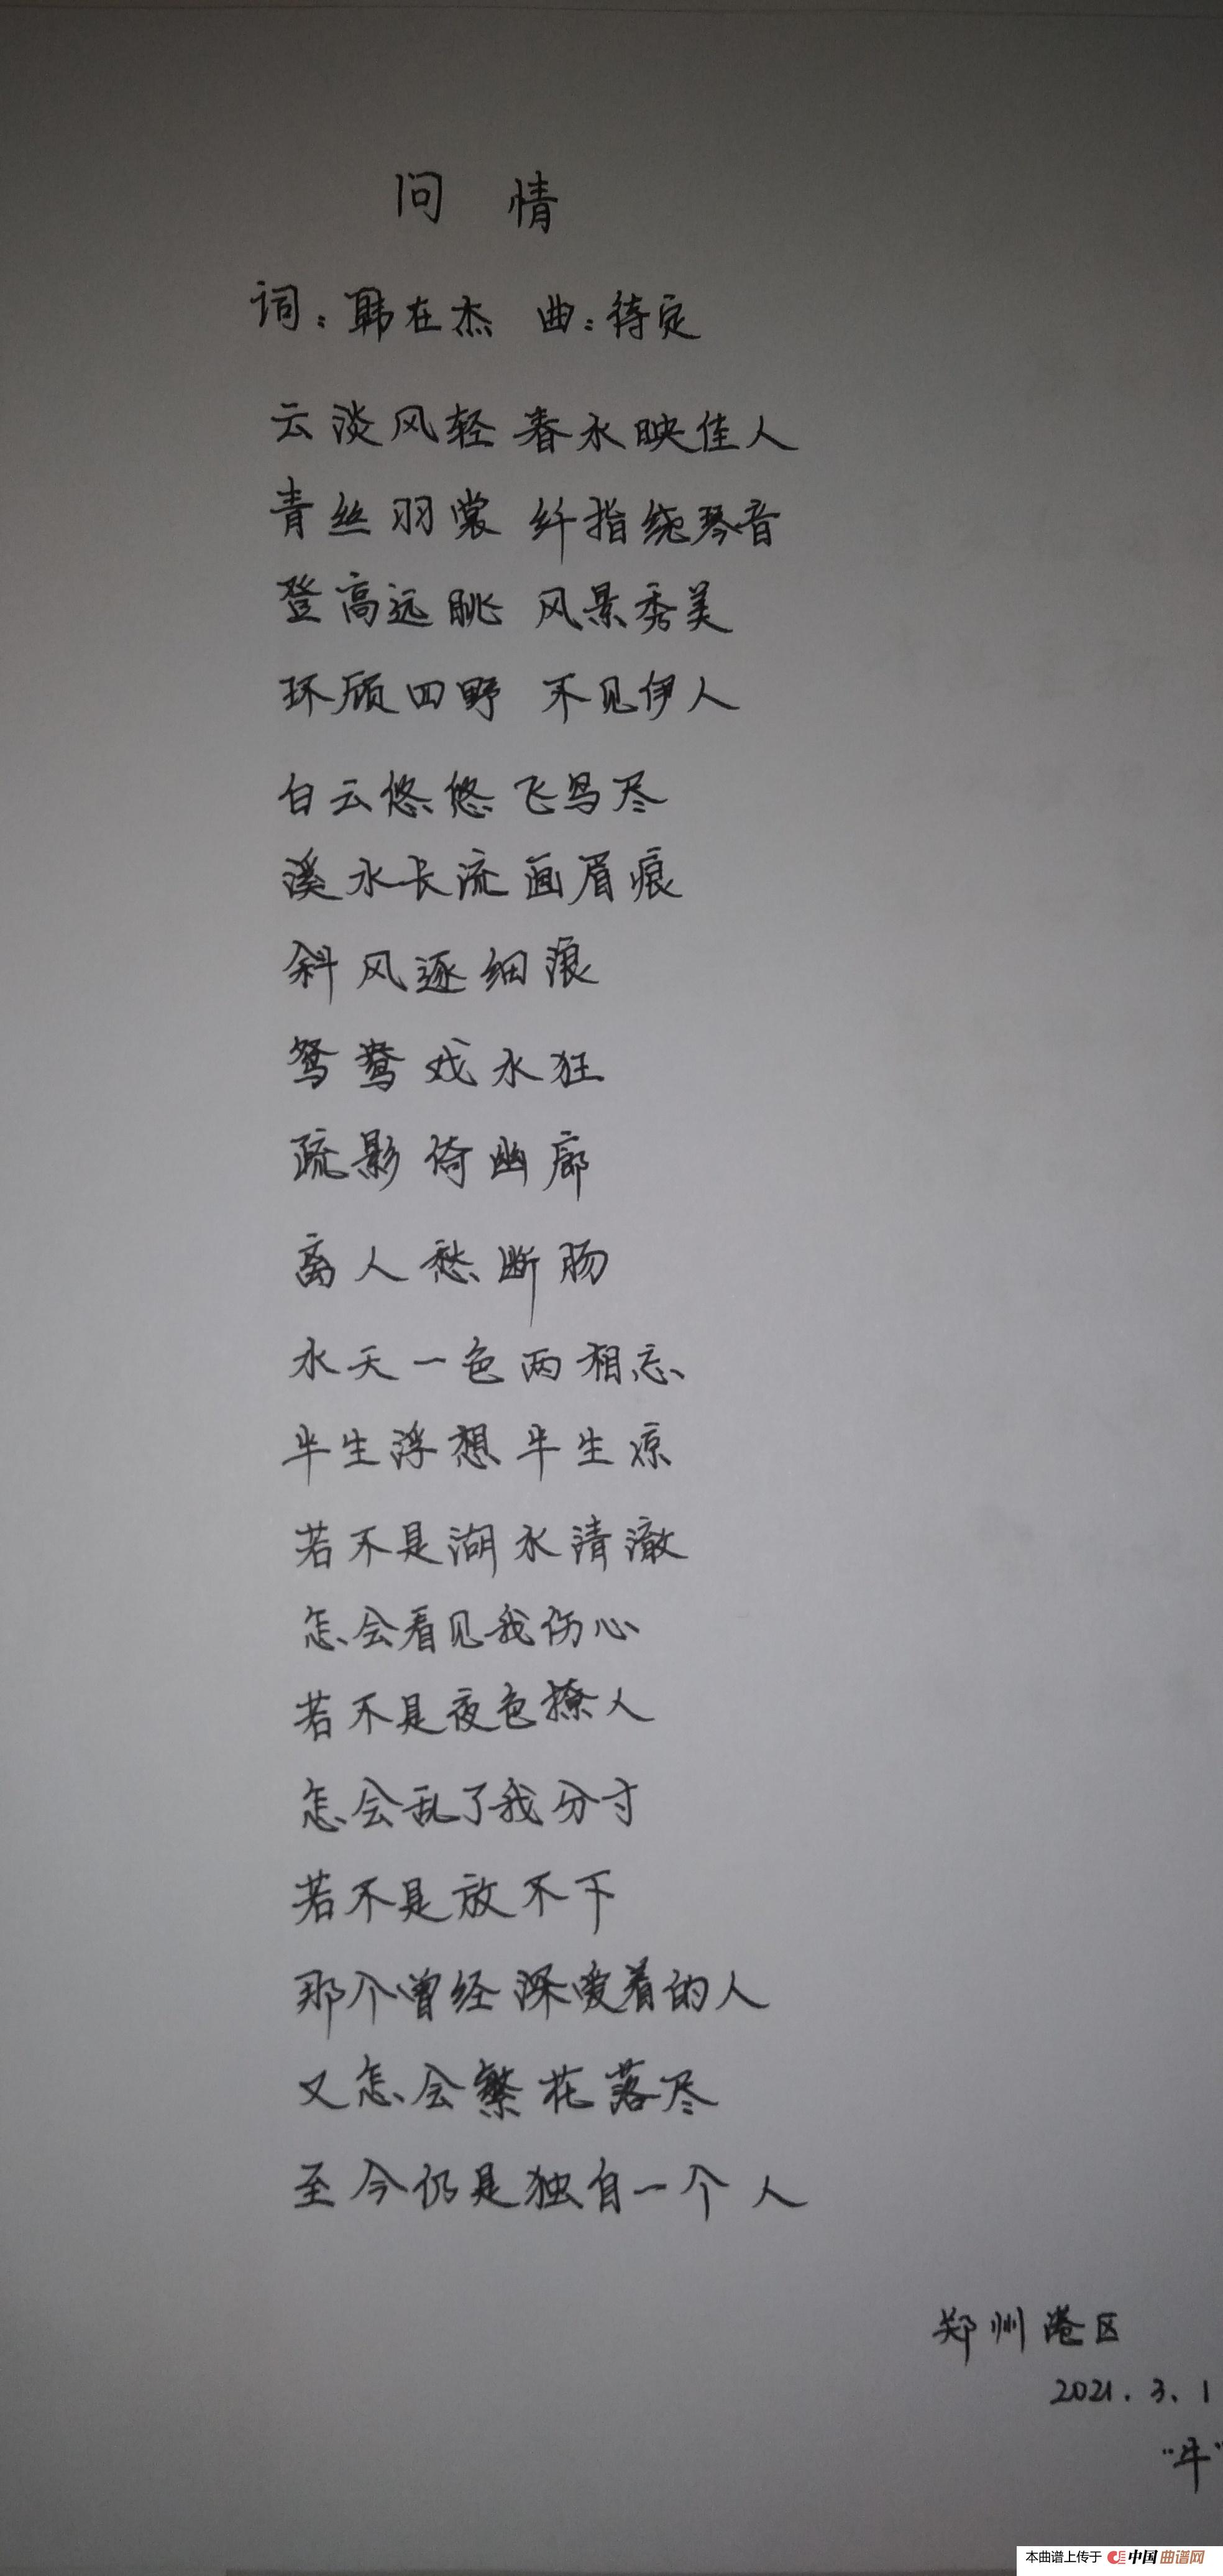 问 情
词：韩在杰 曲：待定
云淡风轻 春水映佳人
青丝羽裳 纤指绕琴音
登高远眺 风景秀美
环顾四野 不见伊人
白云悠悠飞鸟尽
溪水长流画眉痕
斜风逐细浪
鸳鸯戏水狂
疏影倚幽廊
离人愁断肠
水天一色两相忘
半生浮想半生凉
若不是湖水清澈
怎会看见我伤心
若不是夜色撩人
怎会乱了我分寸
若不是放不下
那个曾经深爱着的人
又怎会繁花落尽
至今仍是独自一个人
郑州港区
2021.3.1
“牛”
本曲谱上传于 中国曲谱网